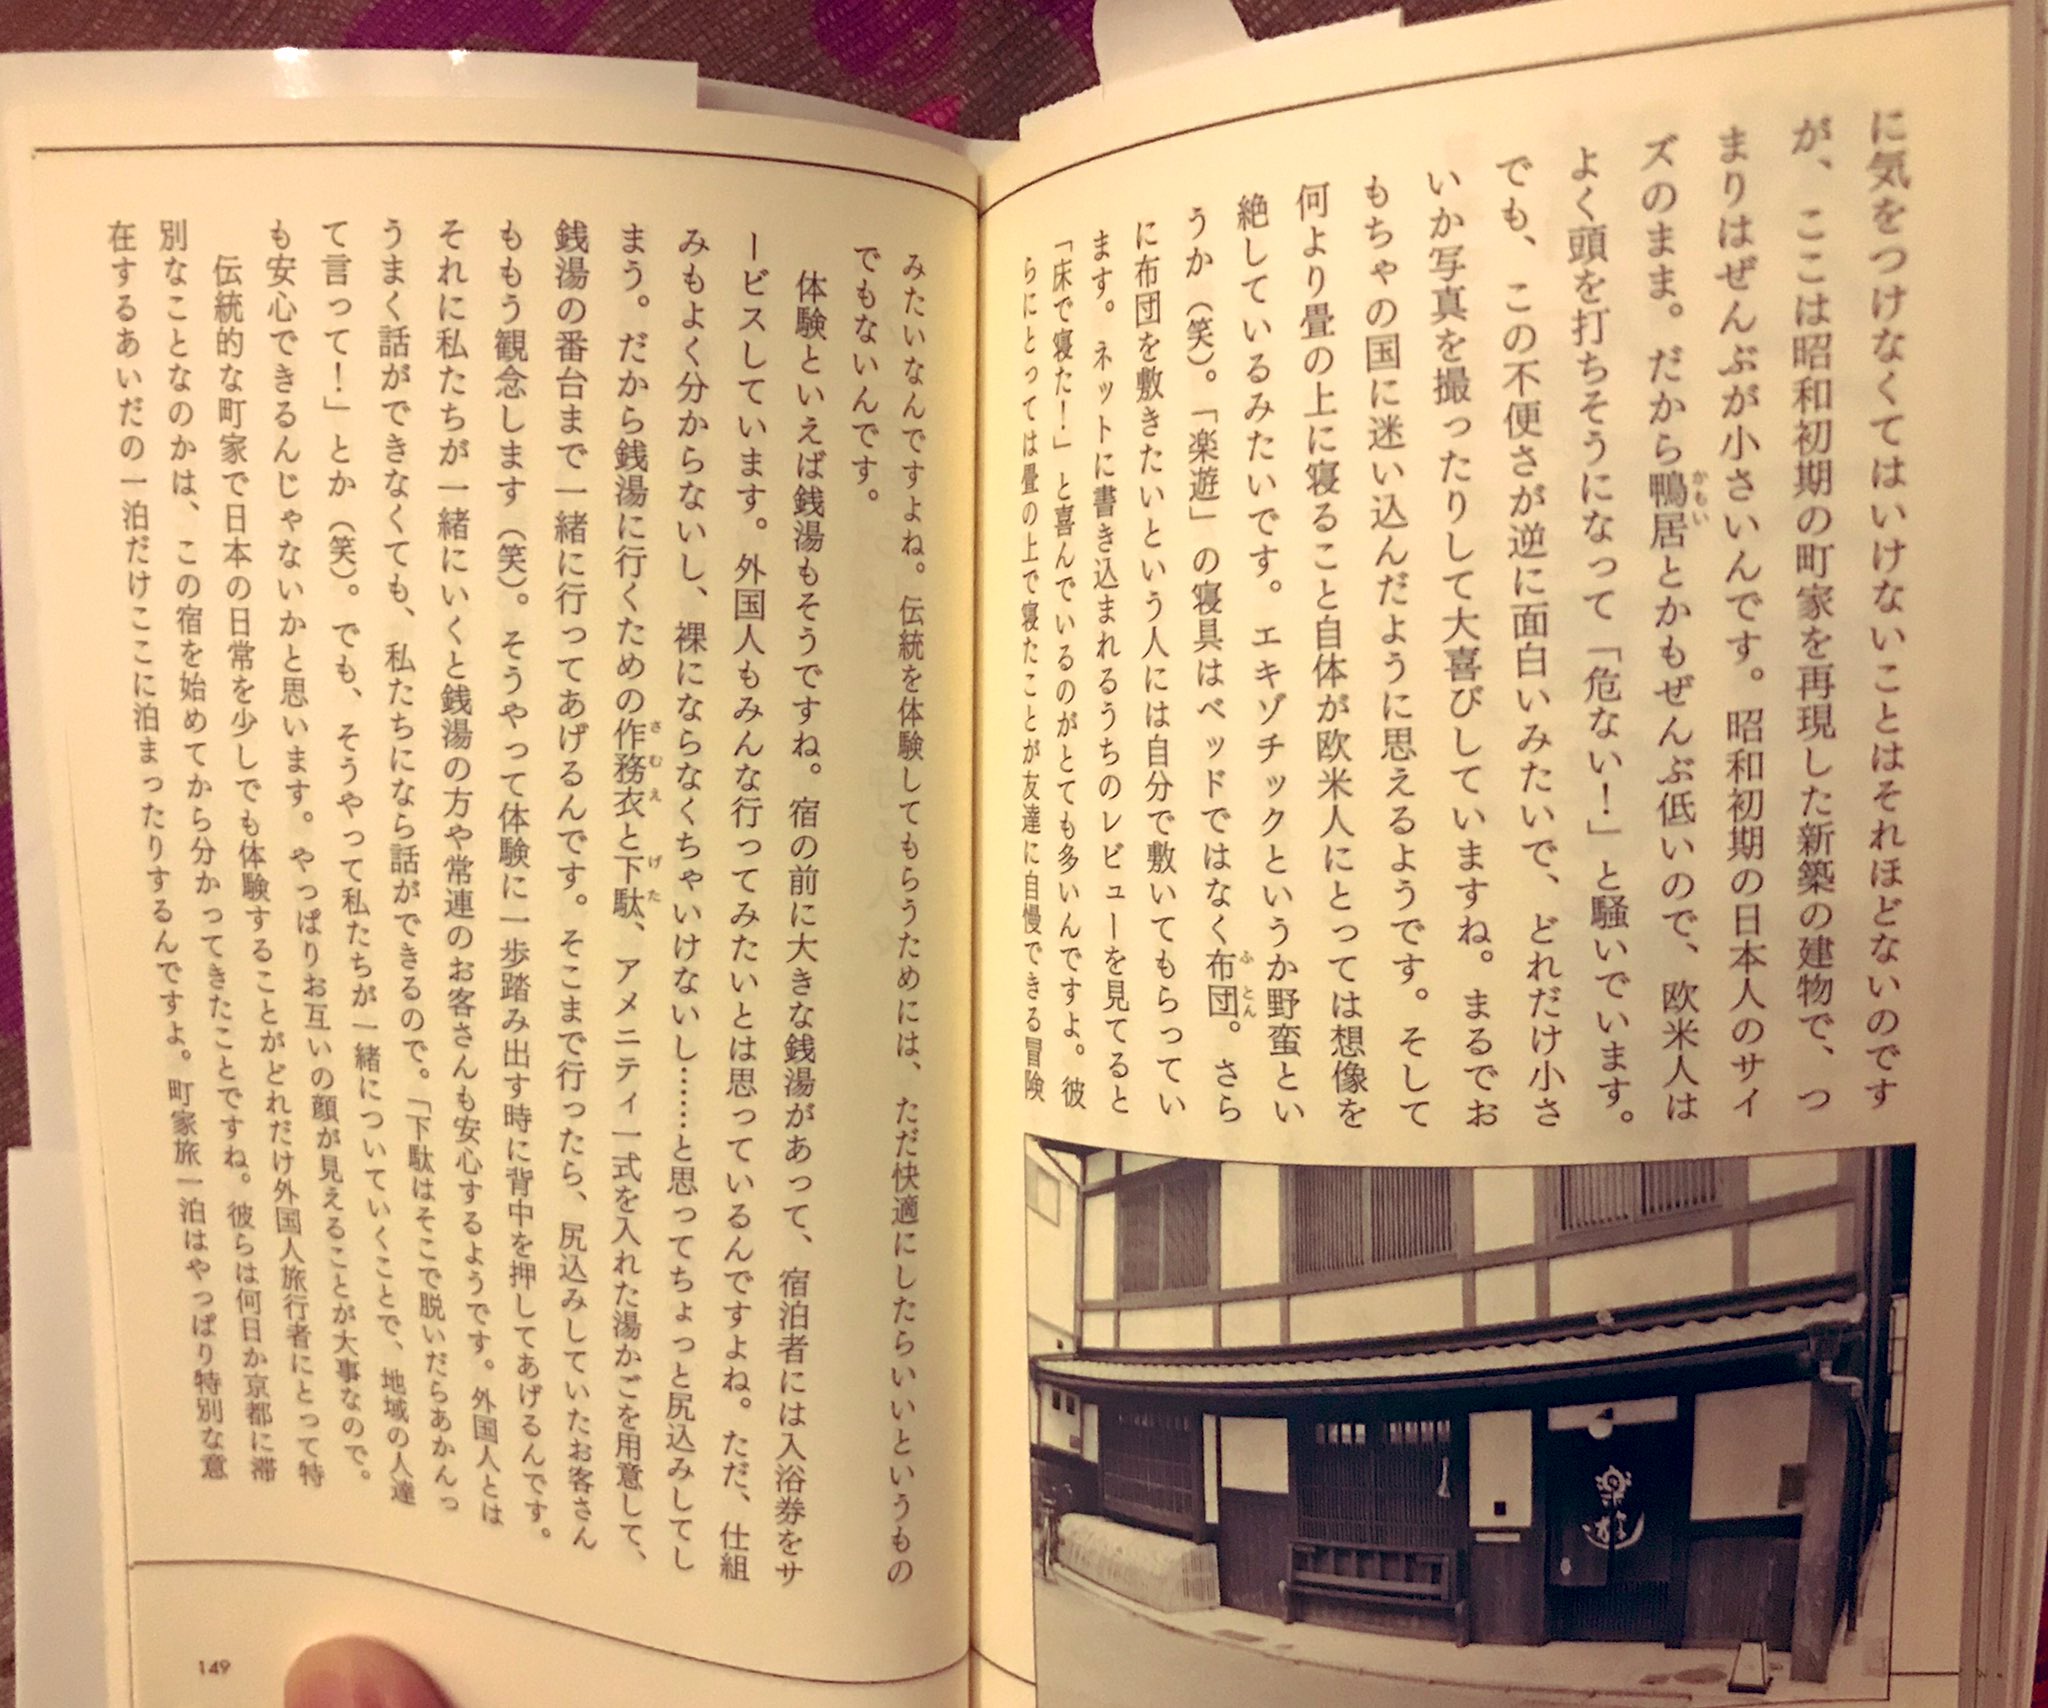 に気をつけなくてはいけないことはそれほどないのです
が、ここは昭和初期の町家を再現した新築の建物で、つ
まりはぜんぶが小さいんです。昭和初期の日本人のサイ
ズのまま。だから鴨居とかもぜんぶ低いので、欧米人は
かもい
よく頭を打ちそうになって「危ない！」と騒いでいます。
でも、この不便さが逆に面白いみたいで、どれだけ小さ
いか写真を撮ったりして大喜びしていますね。まるでお
もちゃの国に迷い込んだように思えるようです。そして
何より畳の上に寝ること自体が欧米人にとっては想像を
絶しているみたいです。エキゾチックというか野蛮とい
うか（笑）。「楽遊」の寝具はベッドではなく布団。さら
ふとん
に布団を敷きたいという人には自分で敷いてもらってい
ます。ネットに書き込まれるうちのレビューを見てると
「床で寝た！」と喜んでいるのがとても多いんですよ。彼
らにとっては畳の上で寝たことが友達に自慢できる冒険
楽遊
みたいなんですよね。伝統を体験してもらうためには、ただ快適にしたらいいというもの
でもないんです。
体験といえば銭湯もそうですね。宿の前に大きな銭湯があって、宿泊者には入浴券をサ
ービスしています。外国人もみんな行ってみたいとは思っているんですよね。ただ、仕組
みもよく分からないし、裸にならなくちゃいけないし……と思ってちょっと尻込みしてし
まう。だから銭湯に行くための作務衣と下駄、アメニティ一式を入れた湯かごを用意して、
さむえ　げた
銭湯の番台まで一緒に行ってあげるんです。そこまで行ったら、尻込みしていたお客さん
ももう観念します（笑）。そうやって体験に一歩踏み出す時に背中を押してあげるんです。
それに私たちが一緒にいくと銭湯の方や常連のお客さんも安心するようです。外国人とは
うまく話ができなくても、私たちになら話ができるので。「下駄はそこで脱いだらあかんっ
て言って！」とか（笑）。でも、そうやって私たちが一緒についていくことで、地域の人達
も安心できるんじゃないかと思います。やっぱりお互いの顔が見えることが大事なので。
伝統的な町家で日本の日常を少しでも体験することがどれだけ外国人旅行者にとって特
別なことなのかは、この宿を始めてから分かってきたことですね。彼らは何日か京都に滞
在するあいだの一泊だけここに泊まったりするんですよ。町家旅一泊はやっぱり特別な意
149